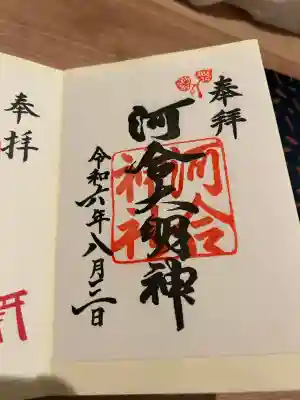 奉拝
河合大明神
河合
神社
令和六年八月三日
奉拝